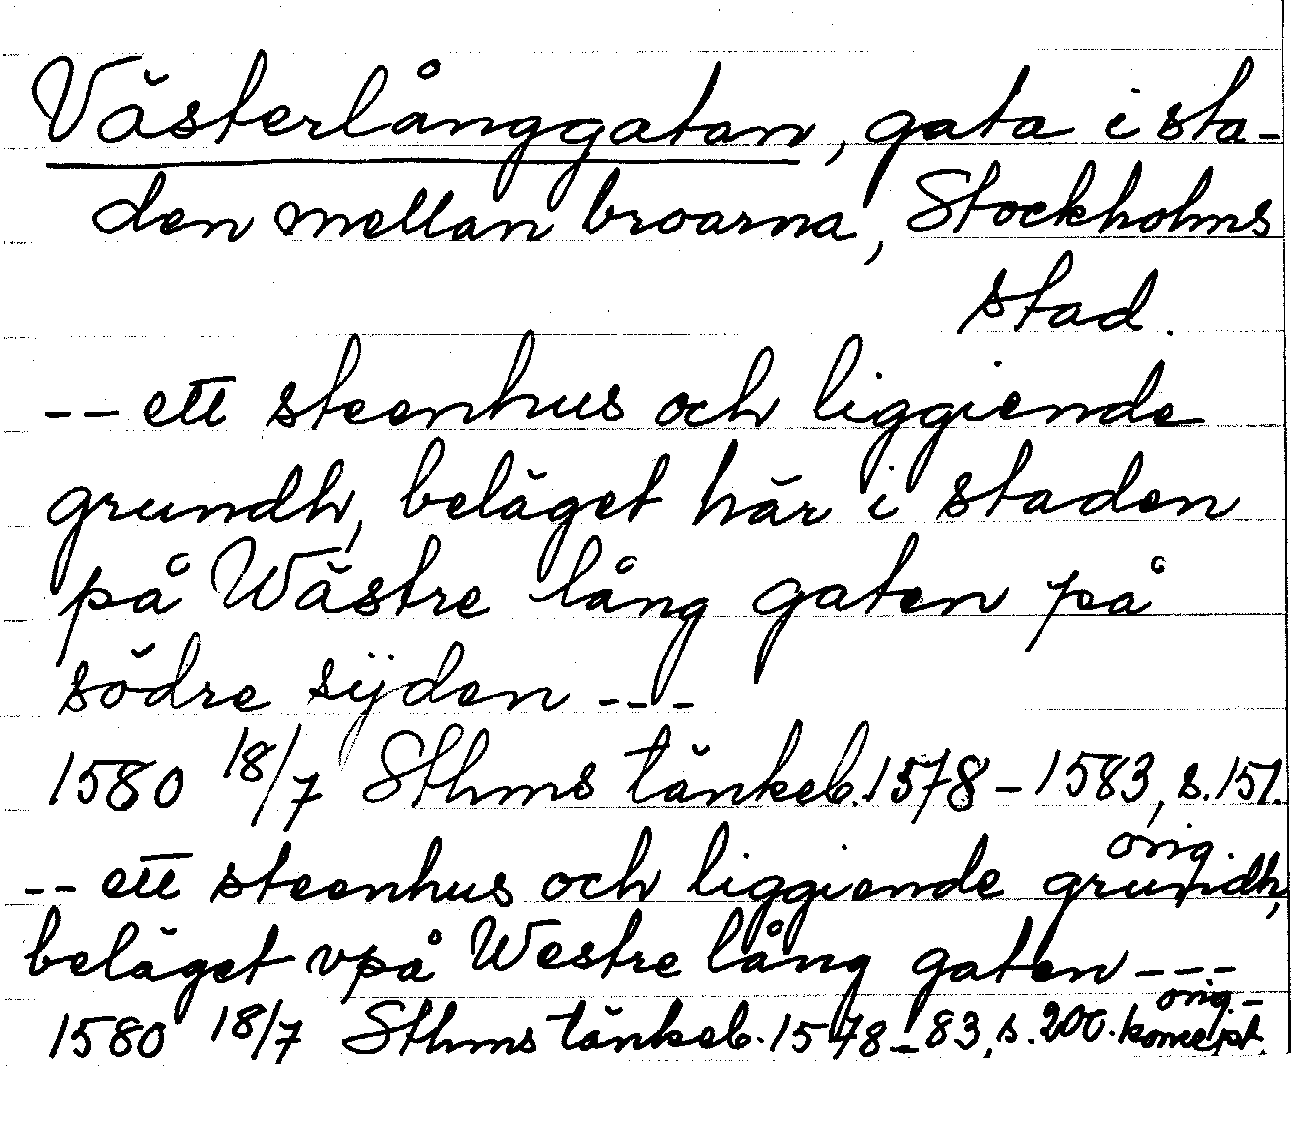 Västerlånggatan, gata i sta-
den mellan broarna, Stockholms
stad.
-- ett steenhus och liggiende
grundh, beläget här i staden
på Wästre lång gaten på
södre sijden ---
1580 18/7 Sthms tänkeb. 1578-1583, s. 151.
orig.
-- ett steenhus och liggiende grundh,
beläget vpå Westre lång gaten ---
orig.-
1580 18/7 Sthms tänkeb. 1578-83, s. 200. koncept.